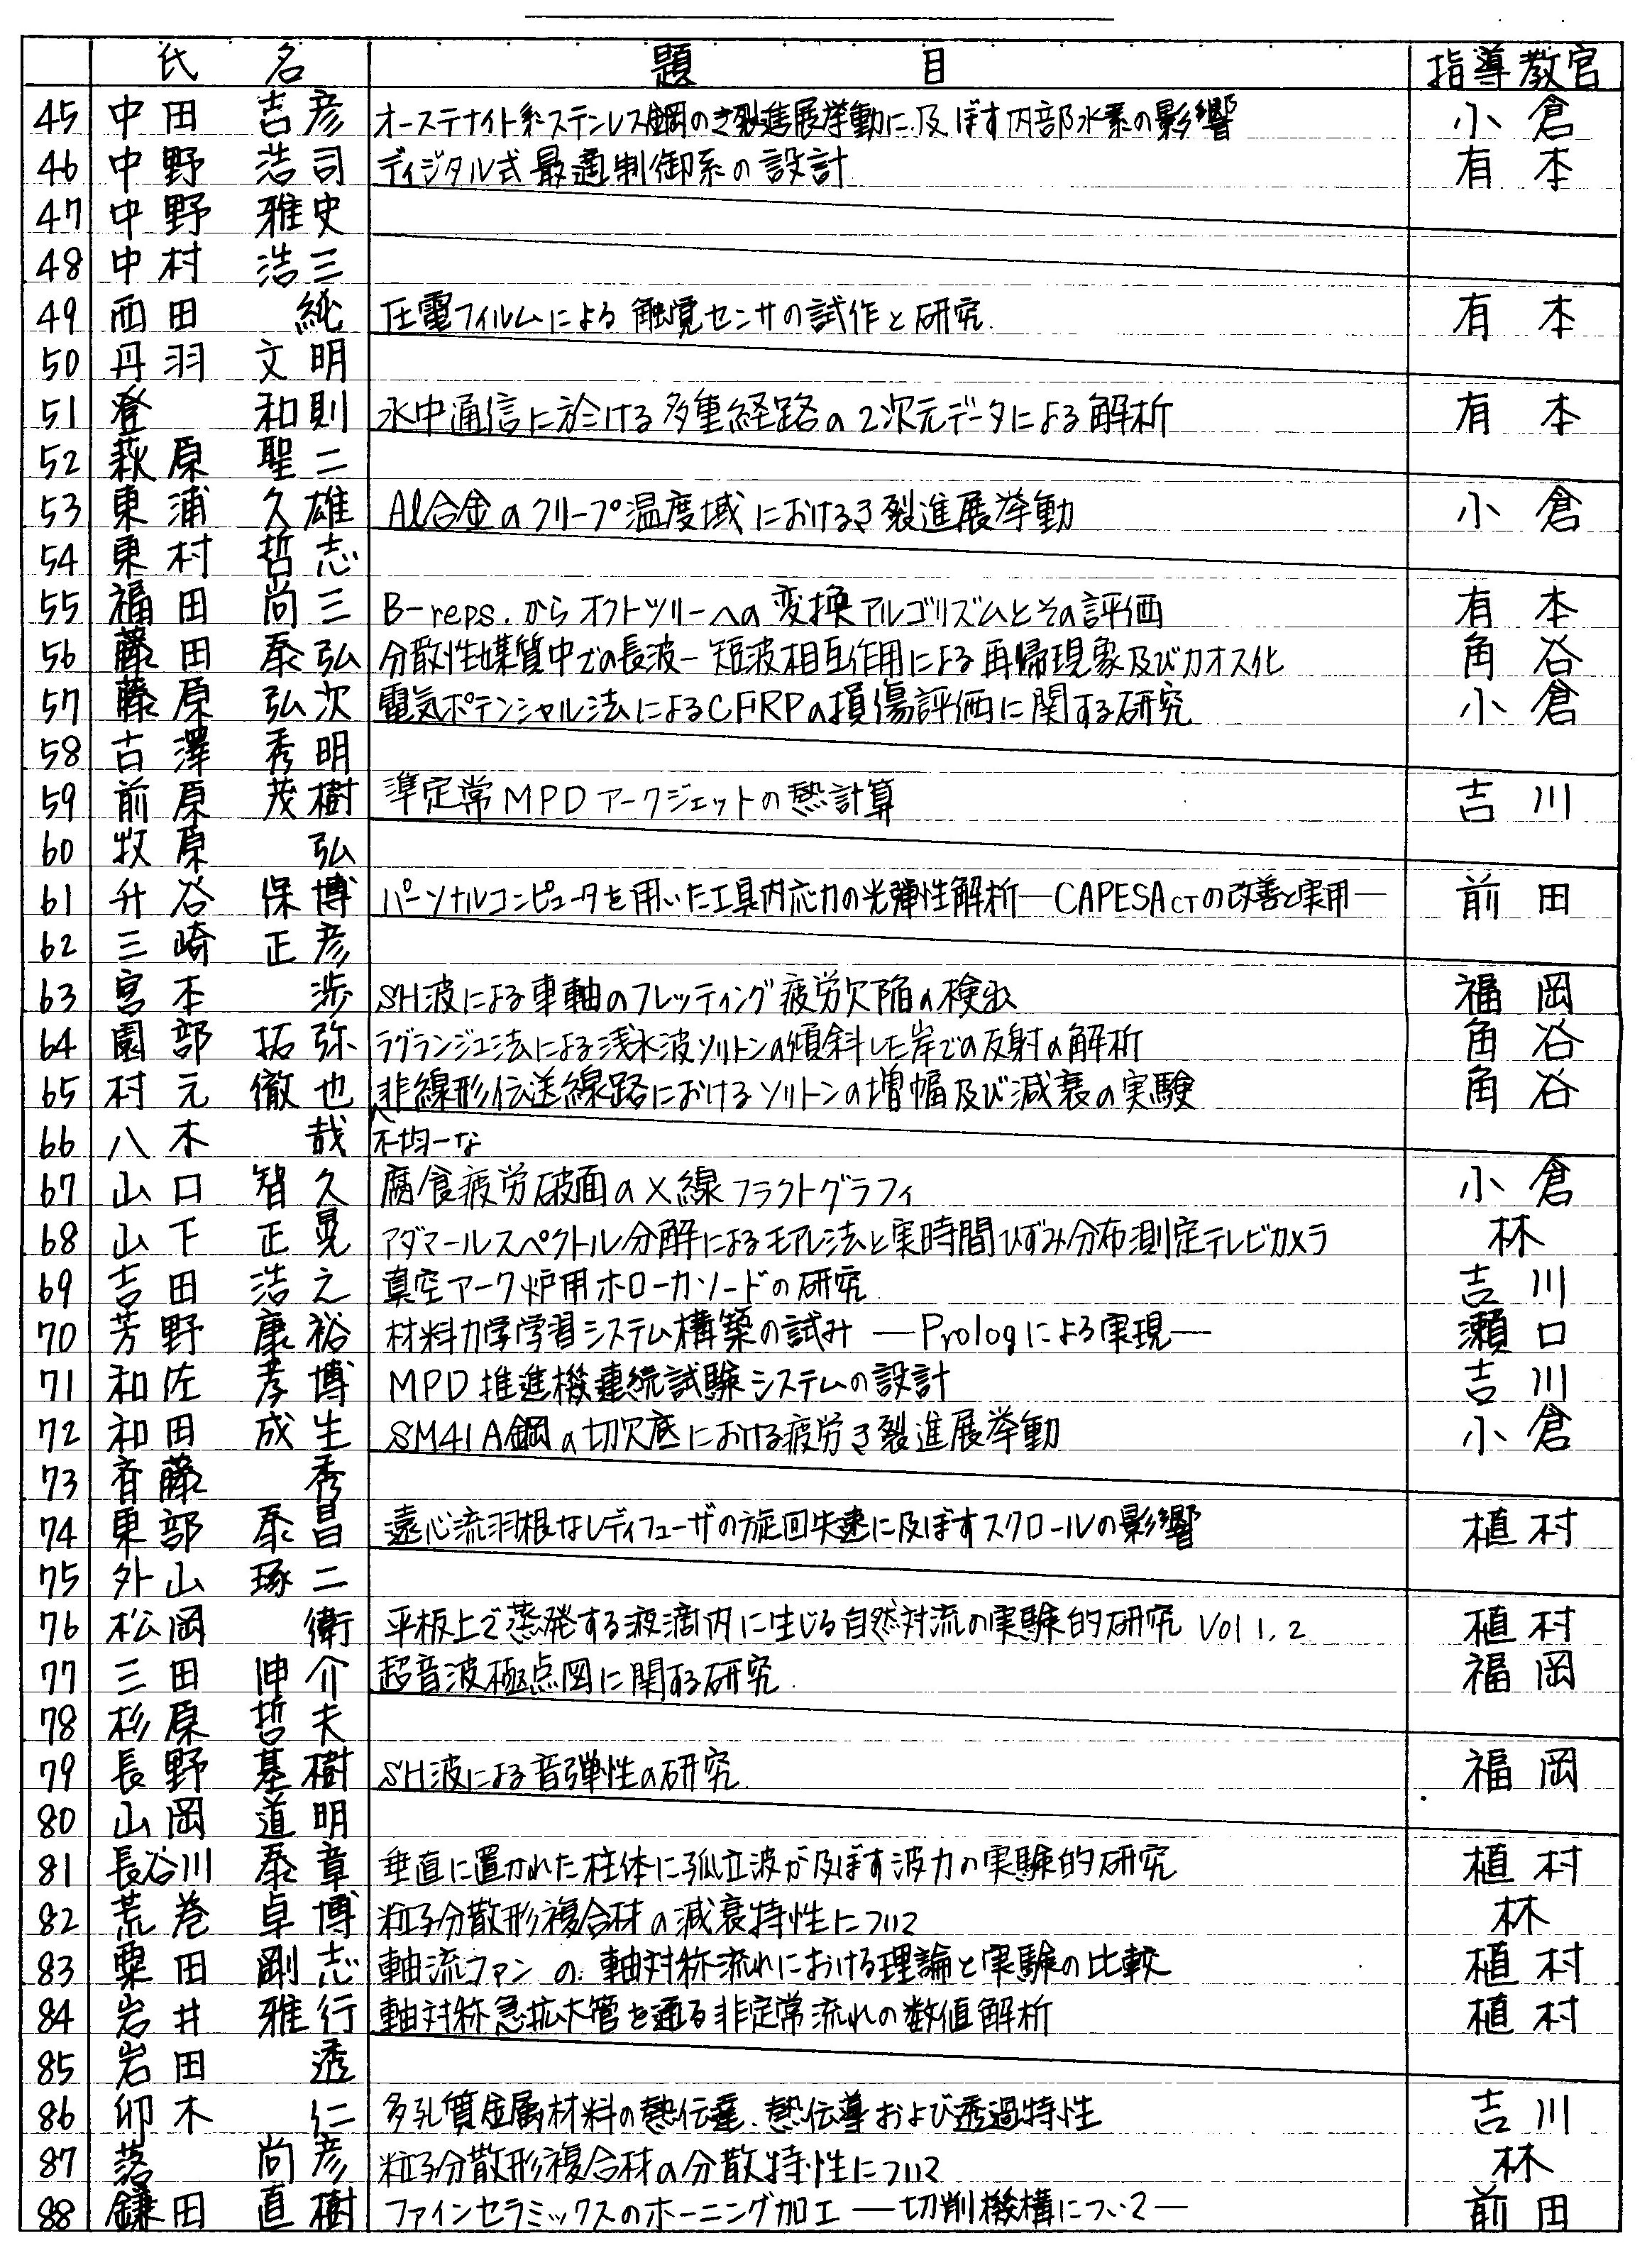 氏 名 題 目 指導教官
45 中田 吉彦 オーステナイト系ステンレス鋼のき裂進展挙動に及ぼす内部水素の影響 小倉
46 中野 浩司 ディジタル式最適制御系の設計 有本
47 中野 雅史
48 中村 浩三
49 西田 純 圧電フィルムによる触覚センサの試作と研究 有本
50 丹羽 文明
51 登 和則 水中通信に於ける多重経路の2次元データによる解析 有本
52 萩原 聖二
53 東浦 久雄 Al合金のクリープ温度域におけるき裂進展挙動 小倉
54 東村 哲志
55 福田 尚三 B-reps.からオクトツリーへの変換アルゴリズムとその評価 有本
56 藤田 泰弘 分散性媒質中での長波-短波相互作用による再帰現象及びカオス化 角谷
57 藤原 弘次 電気ポテンシャル法によるCFRPの損傷評価に関する研究 小倉
58 古澤 秀明
59 前原 茂樹 準定常MPDアークジェットの熱計算 吉川
60 牧原 弘
61 升谷 保博 パーソナルコンピュータを用いた工具内応力の光弾性解析—CAPESACTの改善と実用— 前田
62 三崎 正彦
63 宮本 渉 SH波による車軸のフレッティング疲労欠陥の検出 福岡
64 園部 拓弥 ラグランジュ法による浅水波ソリトンの傾斜した岸での反射の解析 角谷
65 村元 徹也 非線形伝送線路におけるソリトンの増幅及び減衰の実験 角谷
66 八木 哉 不均一な
67 山口 智久 腐食疲労破面のX線フラクトグラフィ 小倉
68 山下 正晃 アダマールスペクトル分解によるモアレ法と実時間ひずみ分布測定テレビカメラ 林
69 吉田 浩之 真空アーク炉用ホローカソードの研究 吉川
70 芳野 康裕 材料力学学習システム構築の試み —Prologによる実現— 瀬口
71 和佐 孝博 MPD推進機連続試験システムの設計 吉川
72 和田 成生 SM41A鋼の切欠底における疲労き裂進展挙動 小倉
73 斉藤 秀
74 東部 泰昌 遠心流羽根なしディフューザの旋回失速に及ぼすスクロールの影響 植村
75 外山 琢二
76 松岡 衛 平板上で蒸発する液滴内に生じる自然対流の実験的研究 Vol 1, 2 植村
77 三田 伸介 超音波極点図に関する研究 福岡
78 杉原 哲夫
79 長野 基樹 SH波による音弾性の研究 福岡
80 山岡 道明
81 長谷川 泰章 垂直に置かれた柱体に孤立波が及ぼす波力の実験的研究 植村
82 荒巻 卓博 粒子分散形複合材の減衰特性について 林
83 粟田 剛志 軸流ファンの軸対称流れにおける理論と実験の比較 植村
84 岩井 雅行 軸対称急拡大管を通る非定常流れの数値解析 植村
85 岩田 透
86 卯木 仁 多孔質金属材料の熱伝達、熱伝導および透過特性 吉川
87 落 尚彦 粒子分散形複合材の分散特性について 林
88 鎌田 直樹 ファインセラミックスのホーニング加工 —切削機構について— 前田